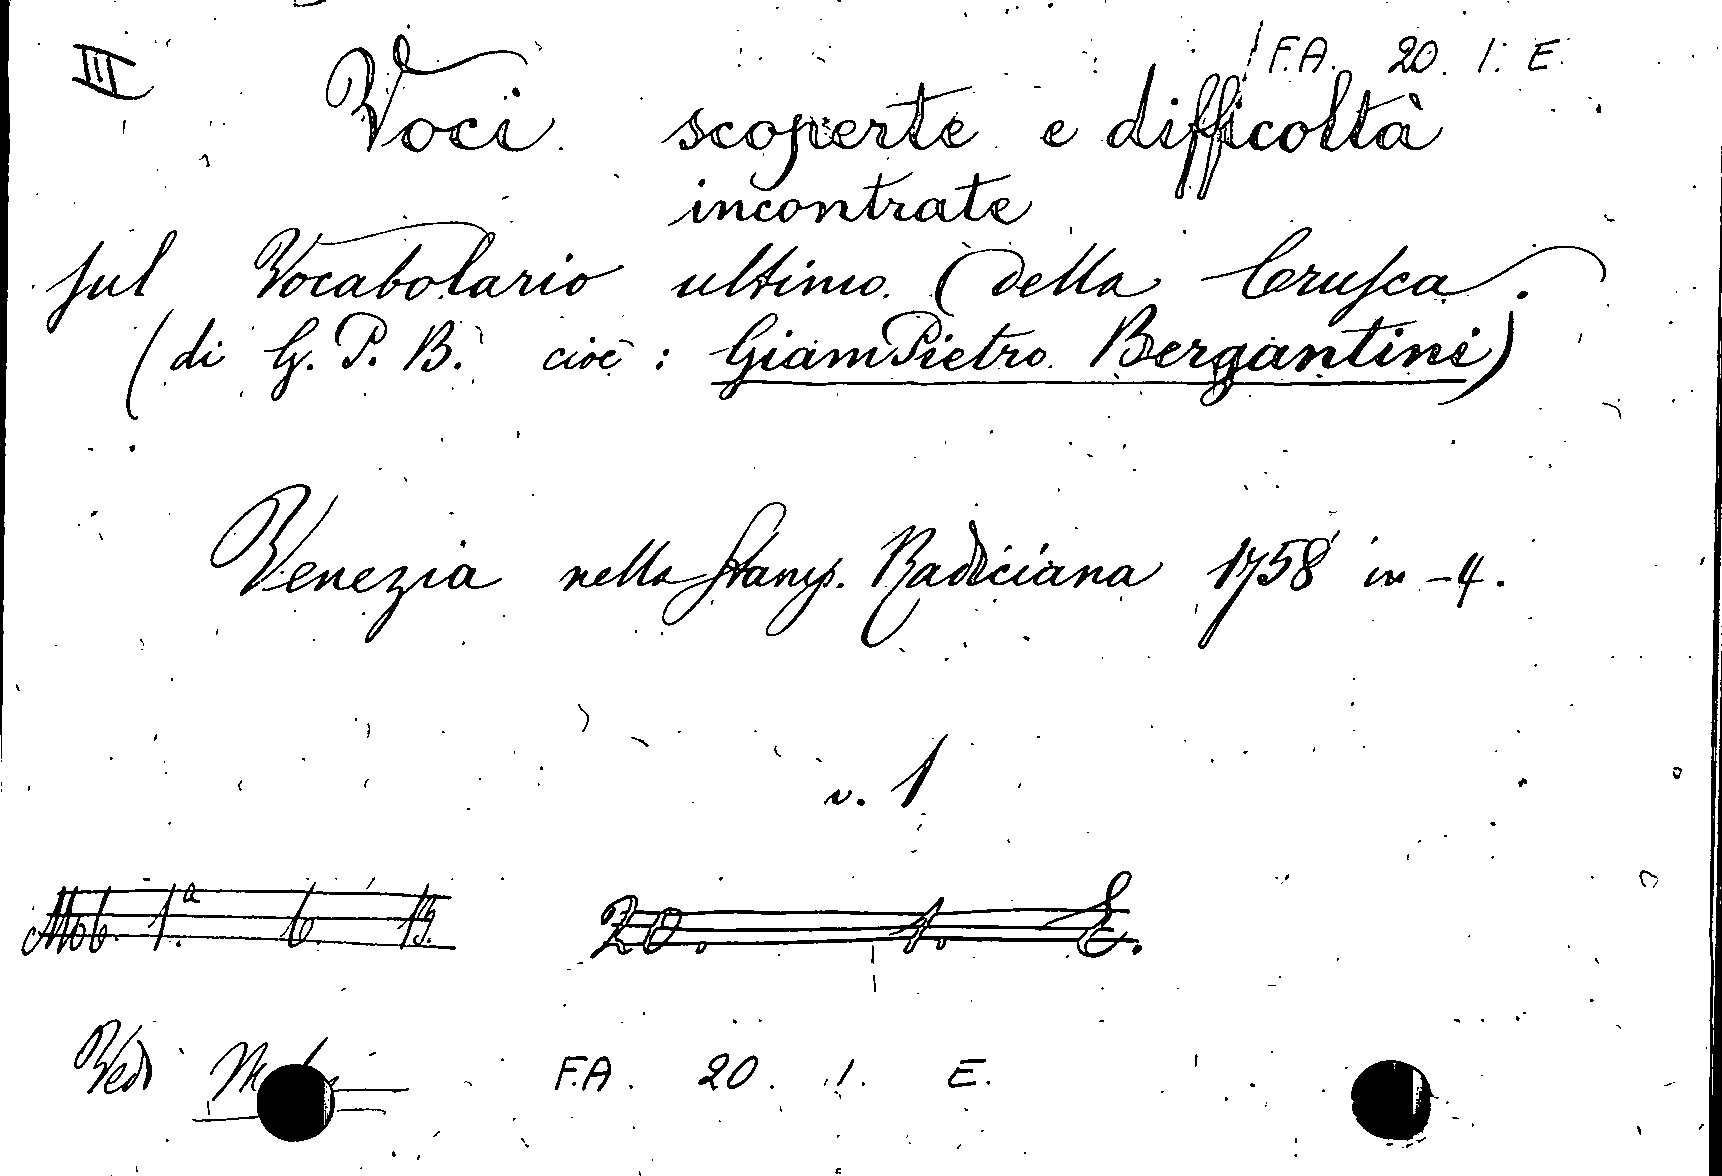 III
F.A. 20. 1. E.
Voci scoperte e difficoltà
incontrate
sul Vocabolario ultimo della Crusca.
(di G. P. B. cioè: GiamPietro Bergantini)
Venezia nella Stamp. Radiciana 1758 in -4.
v. 1
Mob. 1.a 6. 13.
20. 1. E.
Vedi
F.A. 20. 1. E.